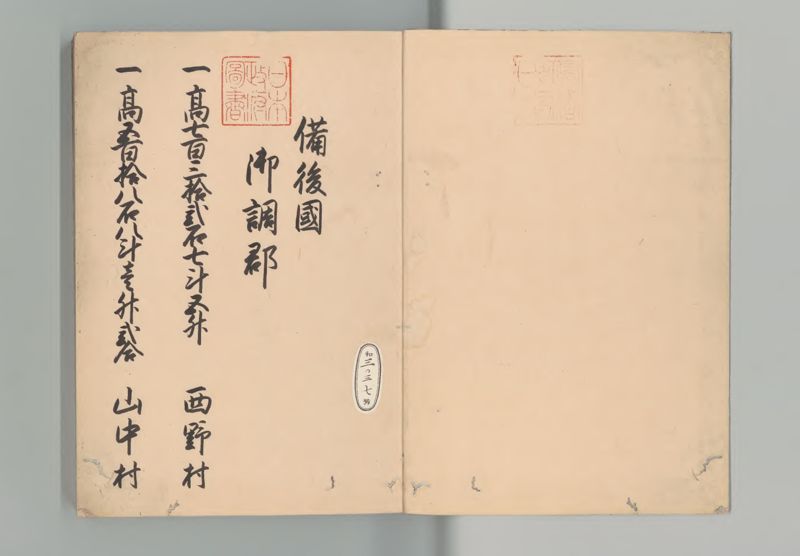 備後國
御調郡
日本
政府
圖書
一高七百二拾貳石七斗五升 西野村
一高五百拾八石八斗壱升貳合 山中村
和
三〇三七
號